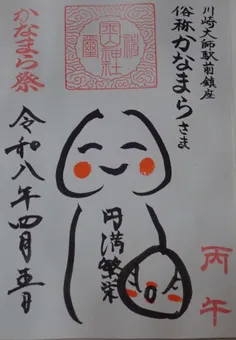 川崎大師駅前鎮座
俗称かなまらさま
金山神社
かなまら祭
円満繁栄
令和八年四月五日
丙午